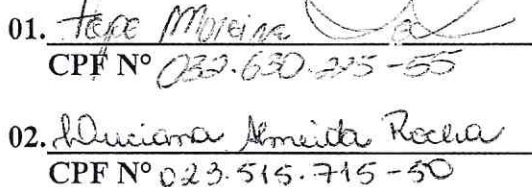 01. Moreira
CPF Nº 032.630.225-55
02. Luciana Almeida Rocha
CPF Nº 023.515.715-50